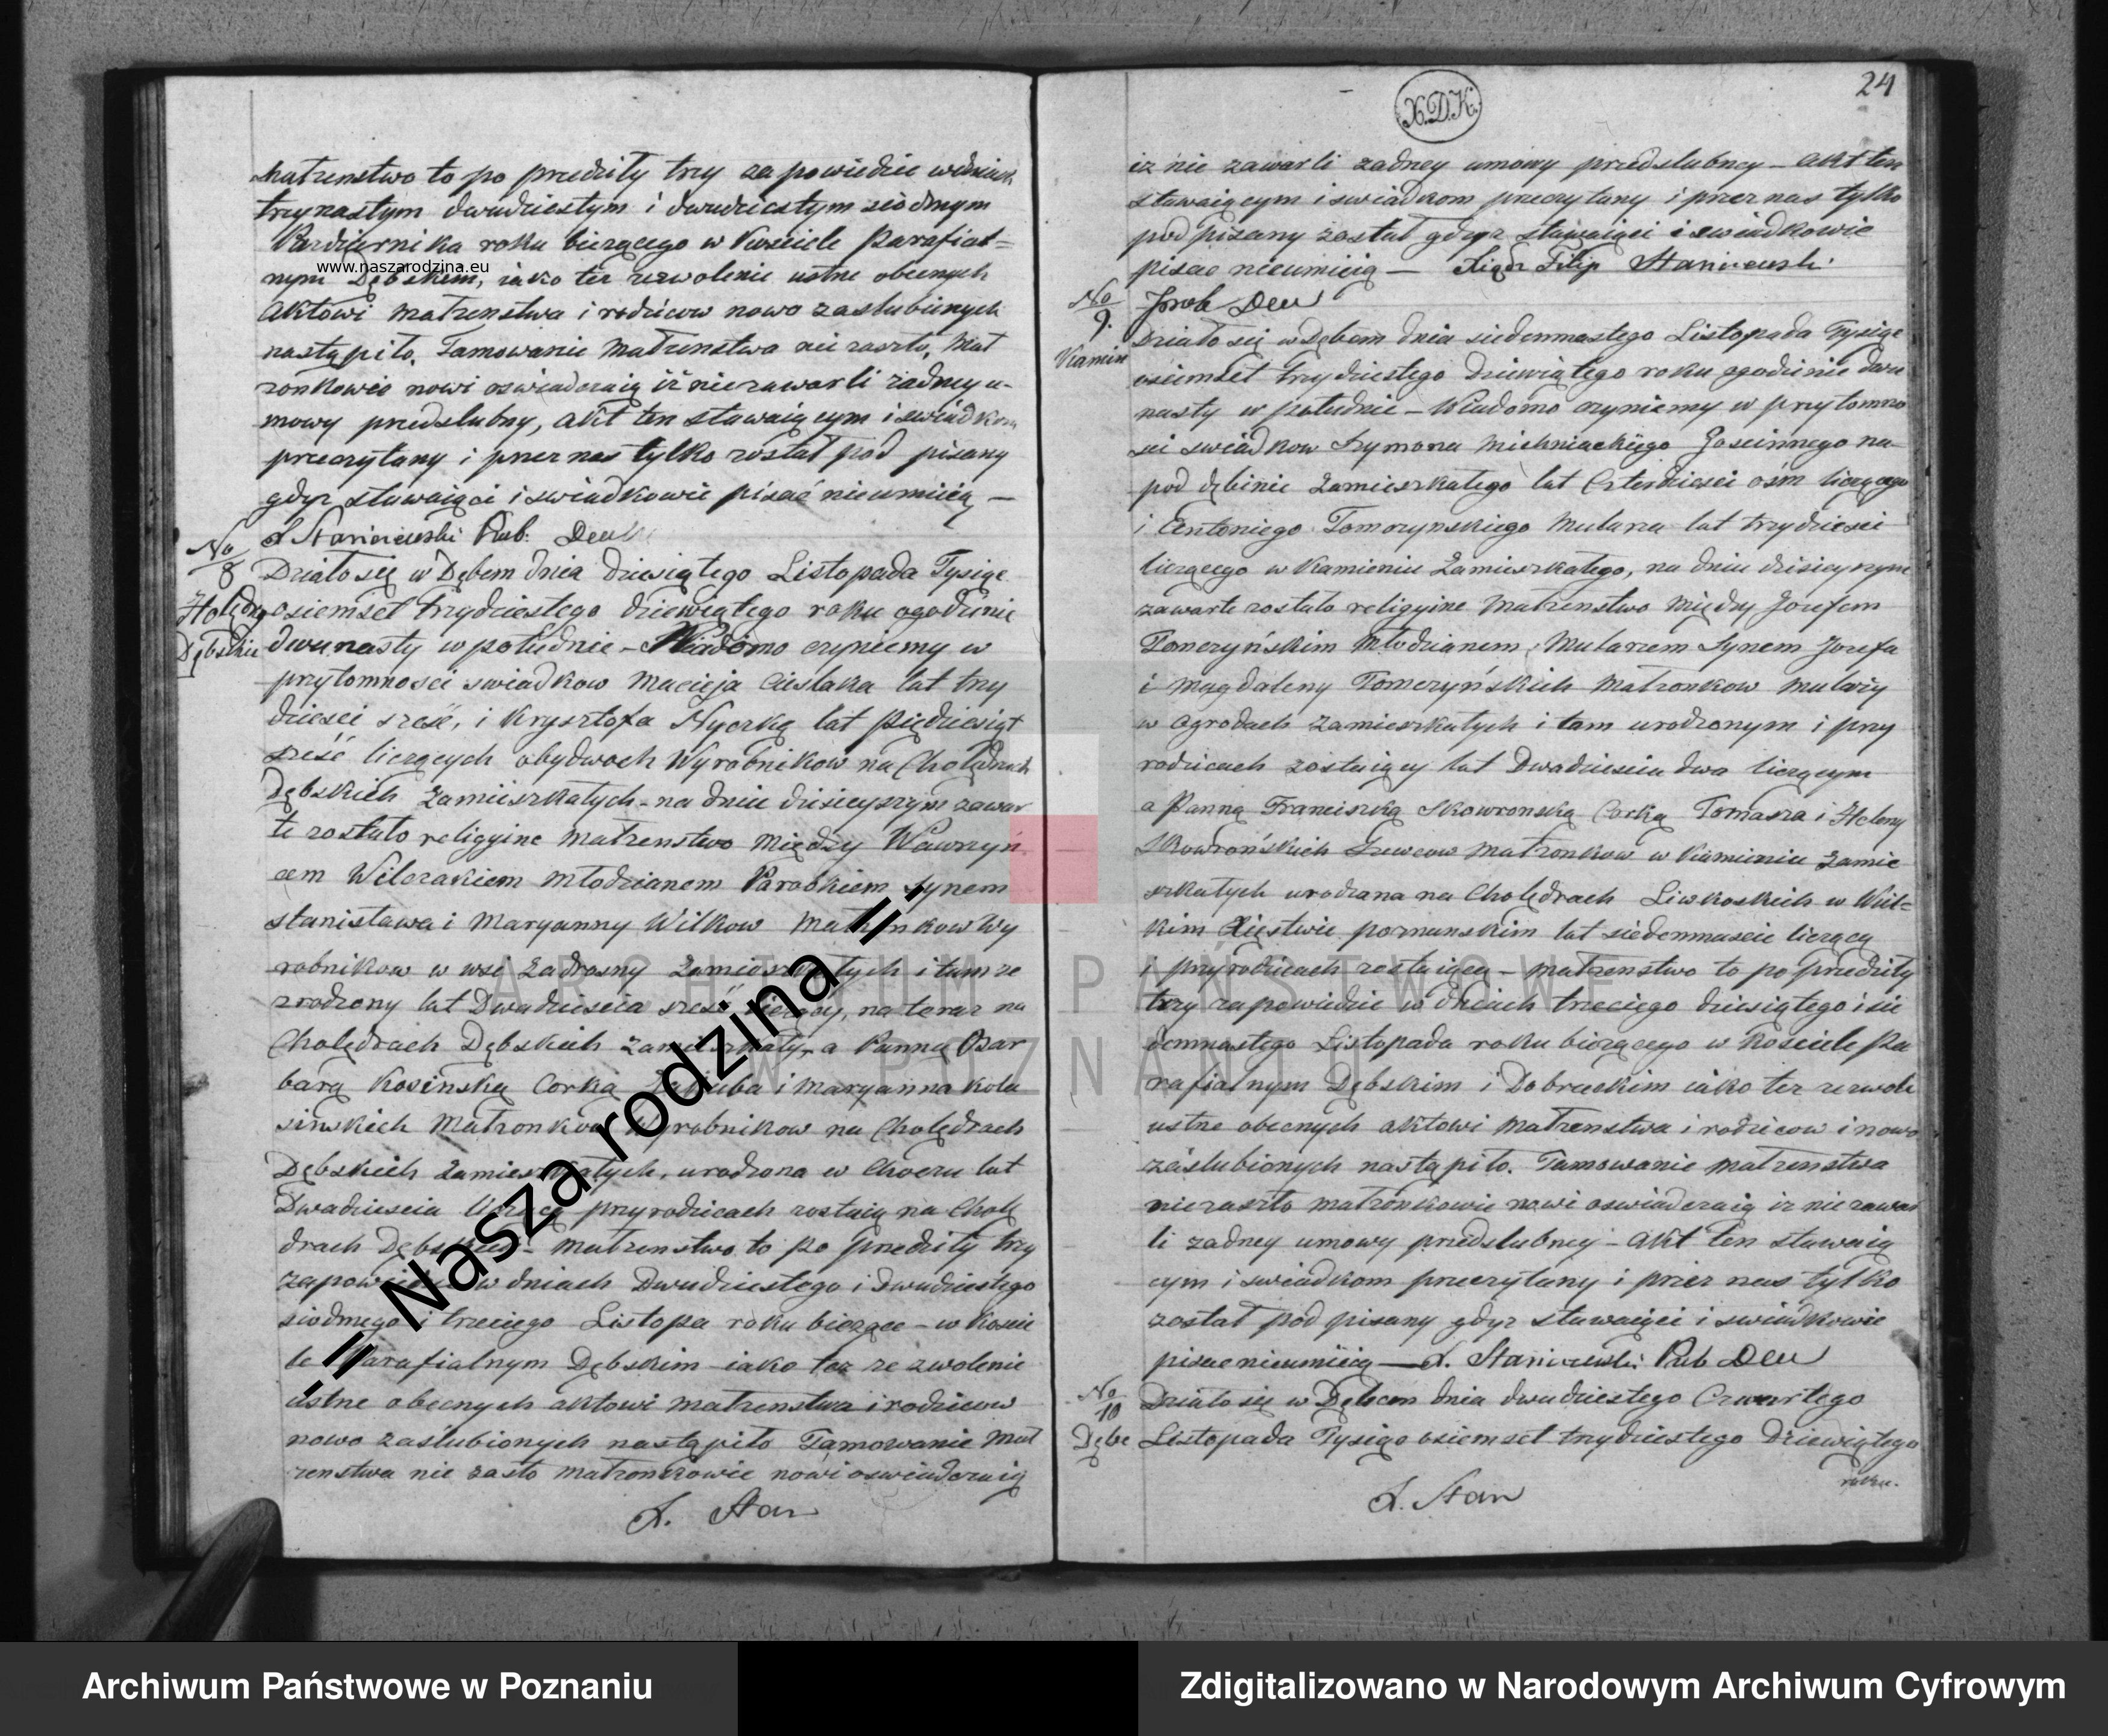 Małzenstwo to po przedzity trzy zapowiedzie wdniach
trzynastym dwudziestym i dwudziestym siodmym
Pazdziernika roku biezącego w Kosciele Parafial=
www.naszarodzina.eu
nym Dębskem, iako też zezwolenie ustne obecnych
Aktowi Małzenstwa i rodzicow nowo zaslubionych
nastąpiło. Tamowanie Małzenstwa nie zaszło, Mał
zonkowie nowi oswiadczaią iż nie zawarli żadney u-
mowy przedslubny, Akt ten stawaiącym i swiadkom
przeczytany i przez nas tylko został pod pisany
gdyz stawaiąci i swiadkowie pisać nieumieią —
X Staniszewski Prob. Dem
No
8
Holędry
Dębskie
Działo się w Dębem dnia dziewiątego Listopada Tysiąc
osiemset trzydziestego dziewiątego roku ogodzinie
dwunasty w południe – Wiadomo czyniemy w
przytomnosci swiadkow Macieja Cieslaka lat trzy
dziesci sześć, i Krysztofa Nycrką lat Pięćdziesiąt
sześć liczących obydwoch Wyrobnikow na Cholędrach
Dębskich Zamieszkałych – na dniu dzisieyszym zawar
te zostało religyine Małzenstwo Między Wawrzyń
cem Wilczakiem Młodzianem Parobkiem Synem
Stanisława i Maryanny Wilkow Małzonkow Wy
robnikow w wsi Zadrosny Zamieszkałych i tamze
zrodzony lat Dwadziescia sześć liczący, na teraz na
Cholędrach Dębskich zamieszkały, a Panną Bar
barą Kosinską Corką Jakuba i Maryanna Kola
sinskich Małzonkow Wyrobnikow na Cholędrach
Dębskich Zamieszkałych, urodzona w Choczu lat
Dwadziescia liczącą przyrodzicach zostaią na Cholę
drach Dębskich – Małzenstwo to po przedzity trzy
zapowiedzie w dniach Dwudziestego i Dwudziestego
siodmego i trzeciego Listopa roku biezące – w Koscie
le Parafialnym Dębskim iako tez ze zwolenie
ustne obecnych aktowi Małzenstwa i rodzicow
nowo zaslubionych nastąpiło Tamowanie Mał
zenstwa nie zasło Małzonkowie nowi oswiadczaią
X. Stan
-= Nasza rodzina =-
24
X.D.K.
iz nie zawarli zadney umowy przedslubney – Akt ten
stawaiącym i swiadkom przeczytany i przez nas tylko
pod pisany został gdyz stawaiąci i swiadkowie
pisac nieumieią — Xiądz Filip Staniszewski
Prob Dem
No
9.
Kamin
Działo się w Dębem dnia siedemnastego Listopada Tysiąc
osiemset trzydziestego Dziewiątego roku ogodzinie dwu
nasty w południe – Wiadomo czyniemy w przytomno
sci swiadkow Szymona Michniackiego Goscinnego na
pod dębinie Zamieszkałego lat Czterdziesci ośm liczącego
i Antoniego Tomczynskiego Mularza lat trzydziesci
liczącego w Kamieniu Zamieszkałego, na dniu dzisieyszym
zawarte zostało religyine Małzenstwo Między Jozefem
Tomczyńskim Młodzianem, Mularzem Synem Jozefa
i Magdaleny Tomczyńskich Małzonkow Mularzy
w Ogrodach zamieszkałych i tam urodzonym i przy
rodzicach zostaiący lat Dwadziescia dwa liczącym
a Panną Franciszką Skowronską Corką Tomasza i Heleny
Skowrońskich Szewcow Małzonkow w Kamieniu Zamie
szkałych urodzona na Cholędrach Liwkoskich w Wiel=
kim Xięstwie poznanskim lat siedemnascie liczącą
i przyrodzicach zostaiąca – Małzenstwo to po przedzity
trzy zapowiedzie w dniach trzeciego dziesiątego i sie
demnastego Listopada roku biezącego w Kosciele Pa
rafialnym Dębskim i Dobreckim iako tez zezwole
ustne obecnych aktowi Małzenstwa i rodzicow i nowo
zaslubionych nastąpiło. Tamowanie Małzenstwa
niezaszło Małzonkowie nowi oswiadczaią iz nie zawar
li zadney umowy przedslubney – Akt ten stawaią
cym i swiadkom przeczytany i przez nas tylko
został pod pisany gdyz stawaiąci i swiadkowie
pisac nieumieią — X. Staniszewski Prob Dem
No
10
Dębe
Działo się w Dębem dnia dwudziestego Czwartego
Listopada Tysiąc osiemset trzydziestego Dziewiątego
roku.
X. Stan
ARCHIWUM PAŃSTWOWE
W POZNANIU
Archiwum Państwowe w Poznaniu
Zdigitalizowano w Narodowym Archiwum Cyfrowym